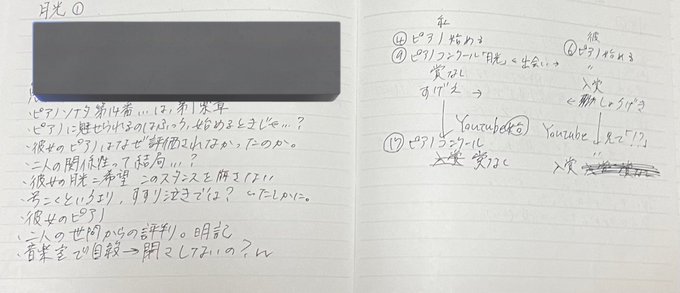 月光①
・ピアノソナタ第14番…は、第1楽章
・ピアノに魅せられるのはふつう、始めるときじゃ…?
・彼女のピアノはなぜ評価されなかったのか。
・二人の関係性って結局…?
・彼女の月光=希望 このスタンスを崩さない
・号こくというより、すすり泣きでは? ←たしかに。
・彼女のピアノ
・二人の世間からの評判。明記
・音楽室で自殺→閉まってないの?w
私
④ピアノ始める
⑨ピアノコンクール「月光」←出会い→
賞なし
すげえ→
Youtube⑩
⑰ピアノコンクール
賞なし
彼
⑥ピアノ始める
〃
入賞
←しょうげき
Youtube 見て「!?」
〃
入賞